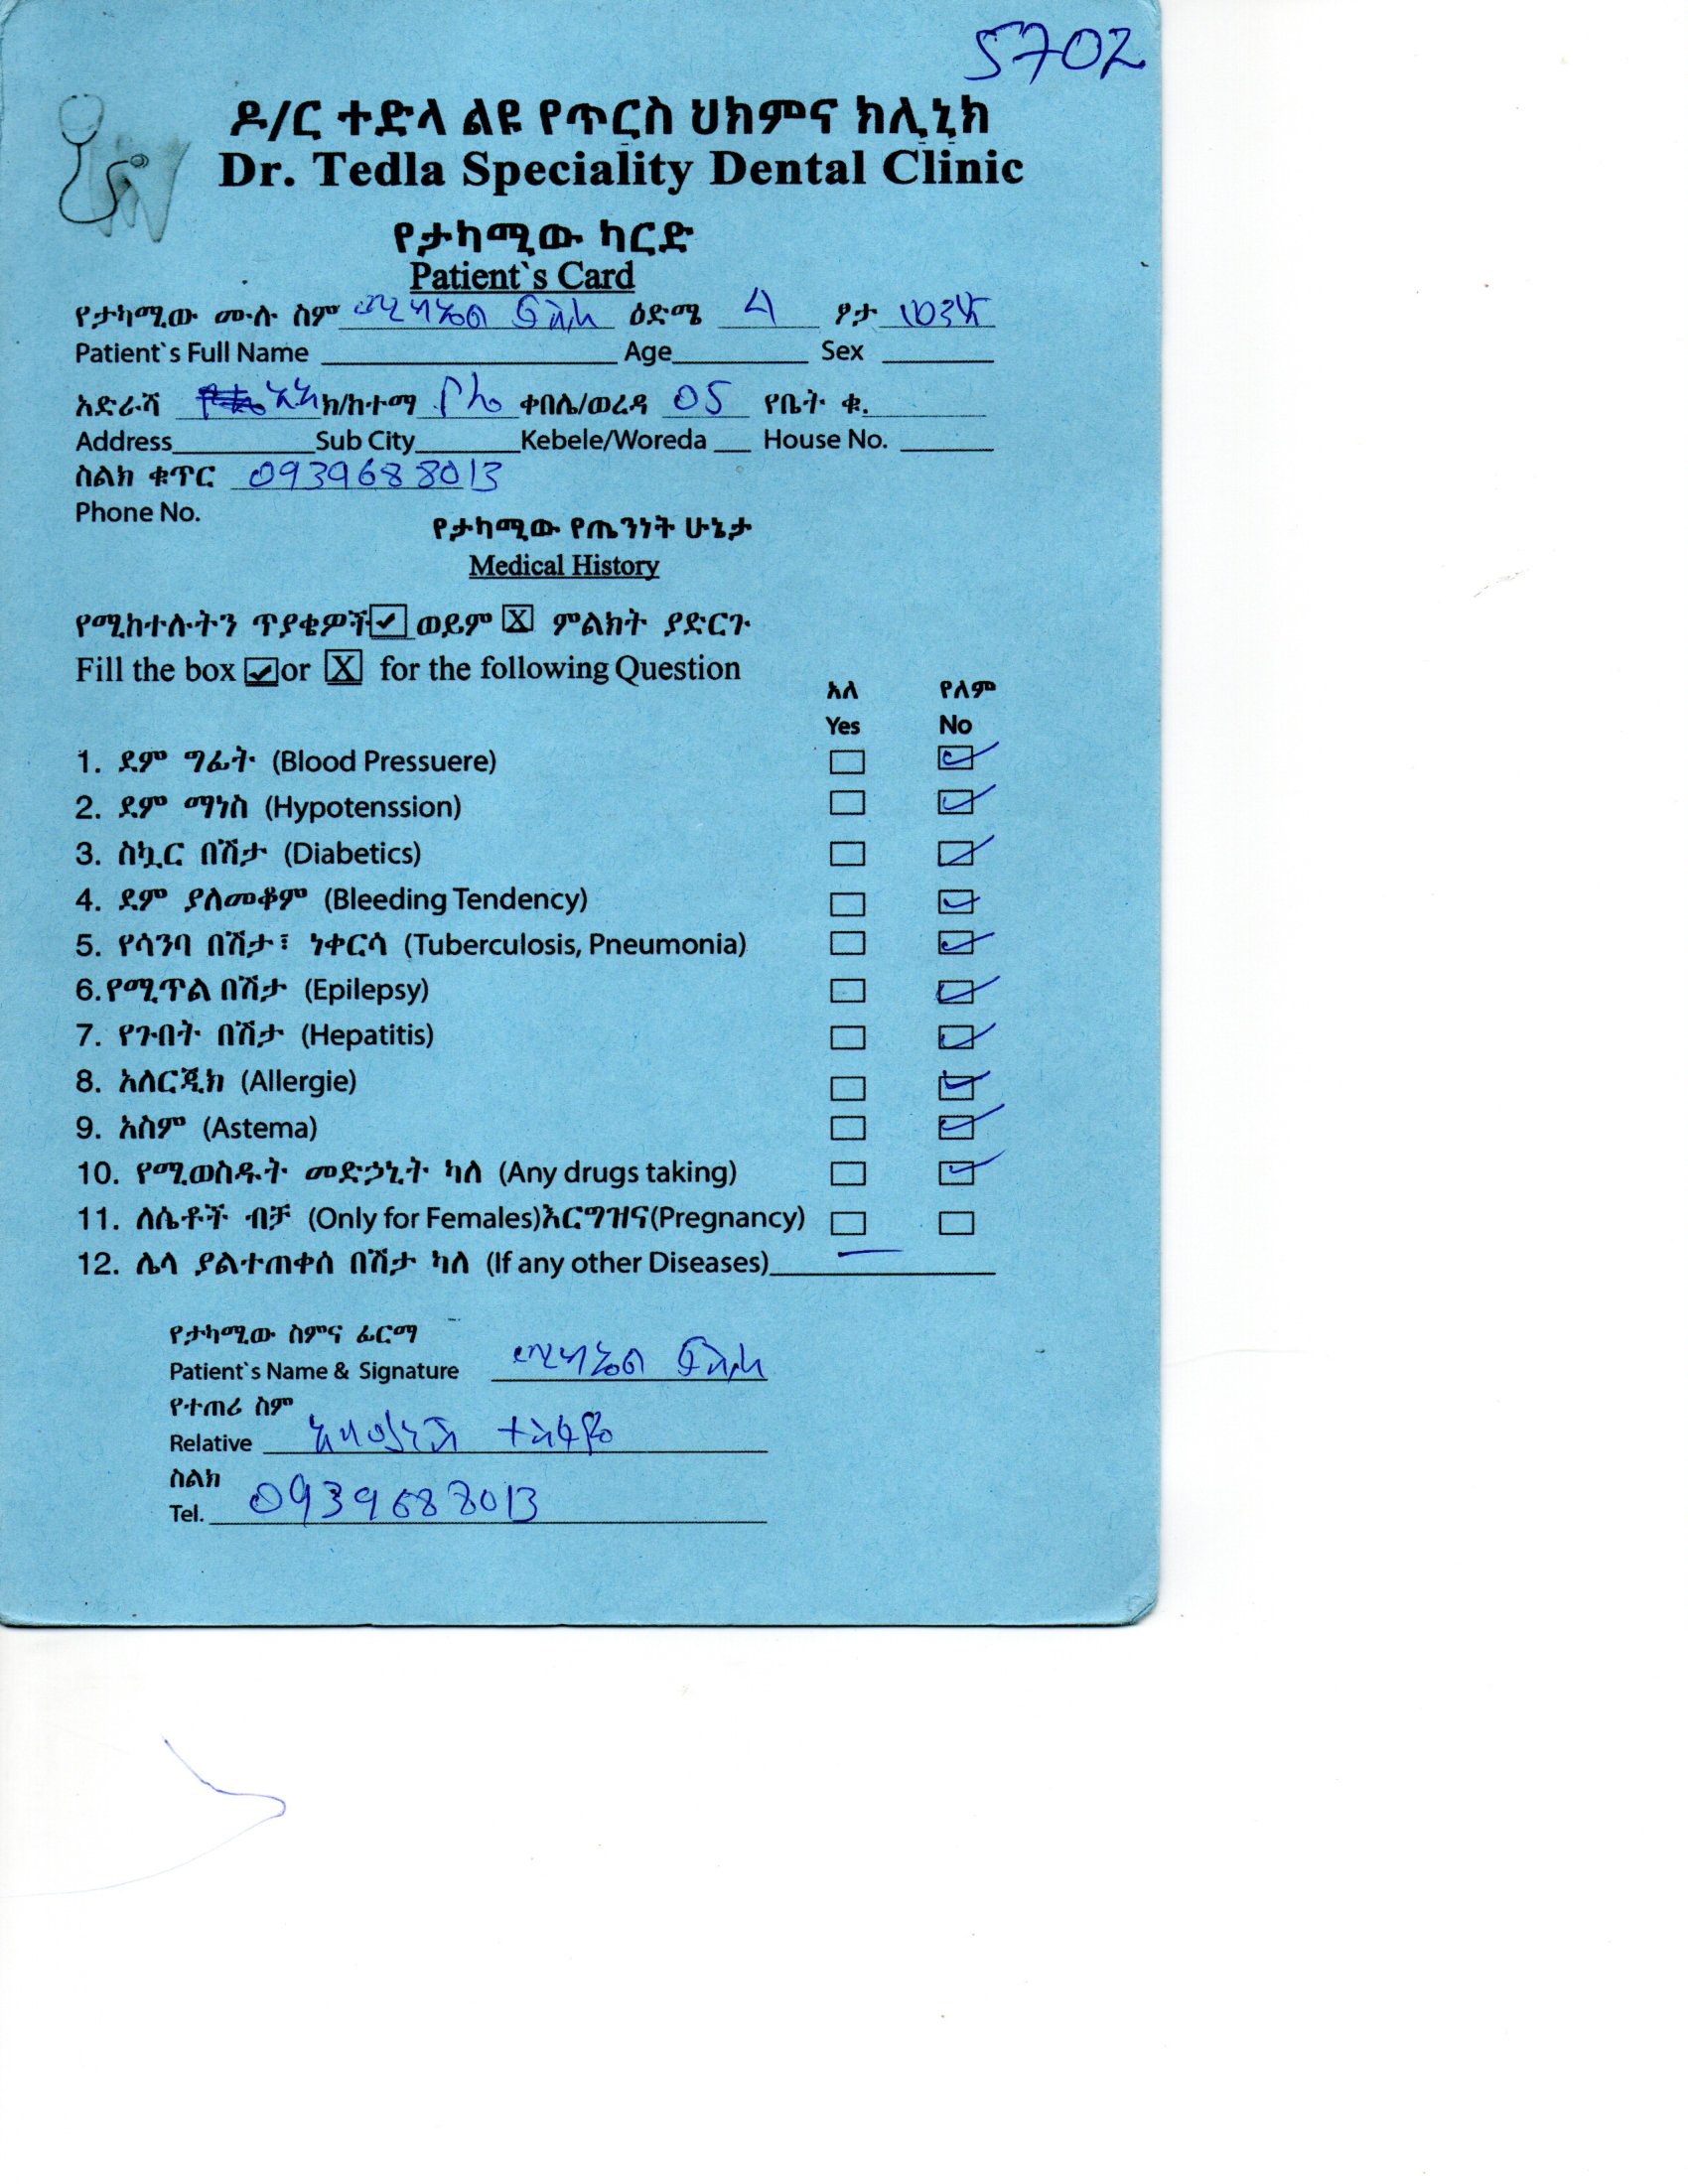 5702
ዶ/ር ተድላ ልዩ የጥርስ ህክምና ክሊኒክ
Dr. Tedla Speciality Dental Clinic
የታካሚው ካርድ
Patient`s Card
የታካሚው ሙሉ ስም ሚካኤል ፍስሐ ዕድሜ 4 ፆታ ወንድ
Patient`s Full Name Age Sex
አድራሻ አአ ክ/ከተማ የካ ቀበሌ/ወረዳ 05 የቤት ቁ.
Address Sub City Kebele/Woreda House No.
ስልክ ቁጥር 0939688013
Phone No.
የታካሚው የጤንነት ሁኔታ
Medical History
የሚከተሉትን ጥያቄዎች ✓ ወይም X ምልክት ያድርጉ
Fill the box ✓ or X for the following Question
አለ የለም
Yes No
1. ደም ግፊት (Blood Pressuere) ☐ ✓
2. ደም ማነስ (Hypotenssion) ☐ ✓
3. ስኳር በሽታ (Diabetics) ☐ ✓
4. ደም ያለመቆም (Bleeding Tendency) ☐ ✓
5. የሳንባ በሽታ፣ ነቀርሳ (Tuberculosis, Pneumonia) ☐ ✓
6.የሚጥል በሽታ (Epilepsy) ☐ ✓
7. የጉበት በሽታ (Hepatitis) ☐ ✓
8. አለርጂክ (Allergie) ☐ ✓
9. አስም (Astema) ☐ ✓
10. የሚወስዱት መድኃኒት ካለ (Any drugs taking) ☐ ✓
11. ለሴቶች ብቻ (Only for Females)እርግዝና(Pregnancy) ☐ ☐
12. ሌላ ያልተጠቀሰ በሽታ ካለ (If any other Diseases) —
የታካሚው ስምና ፊርማ
Patient`s Name & Signature ሚካኤል ፍስሐ
የተጠሪ ስም
Relative ተስፋዬ
ስልክ
Tel. 0939688013